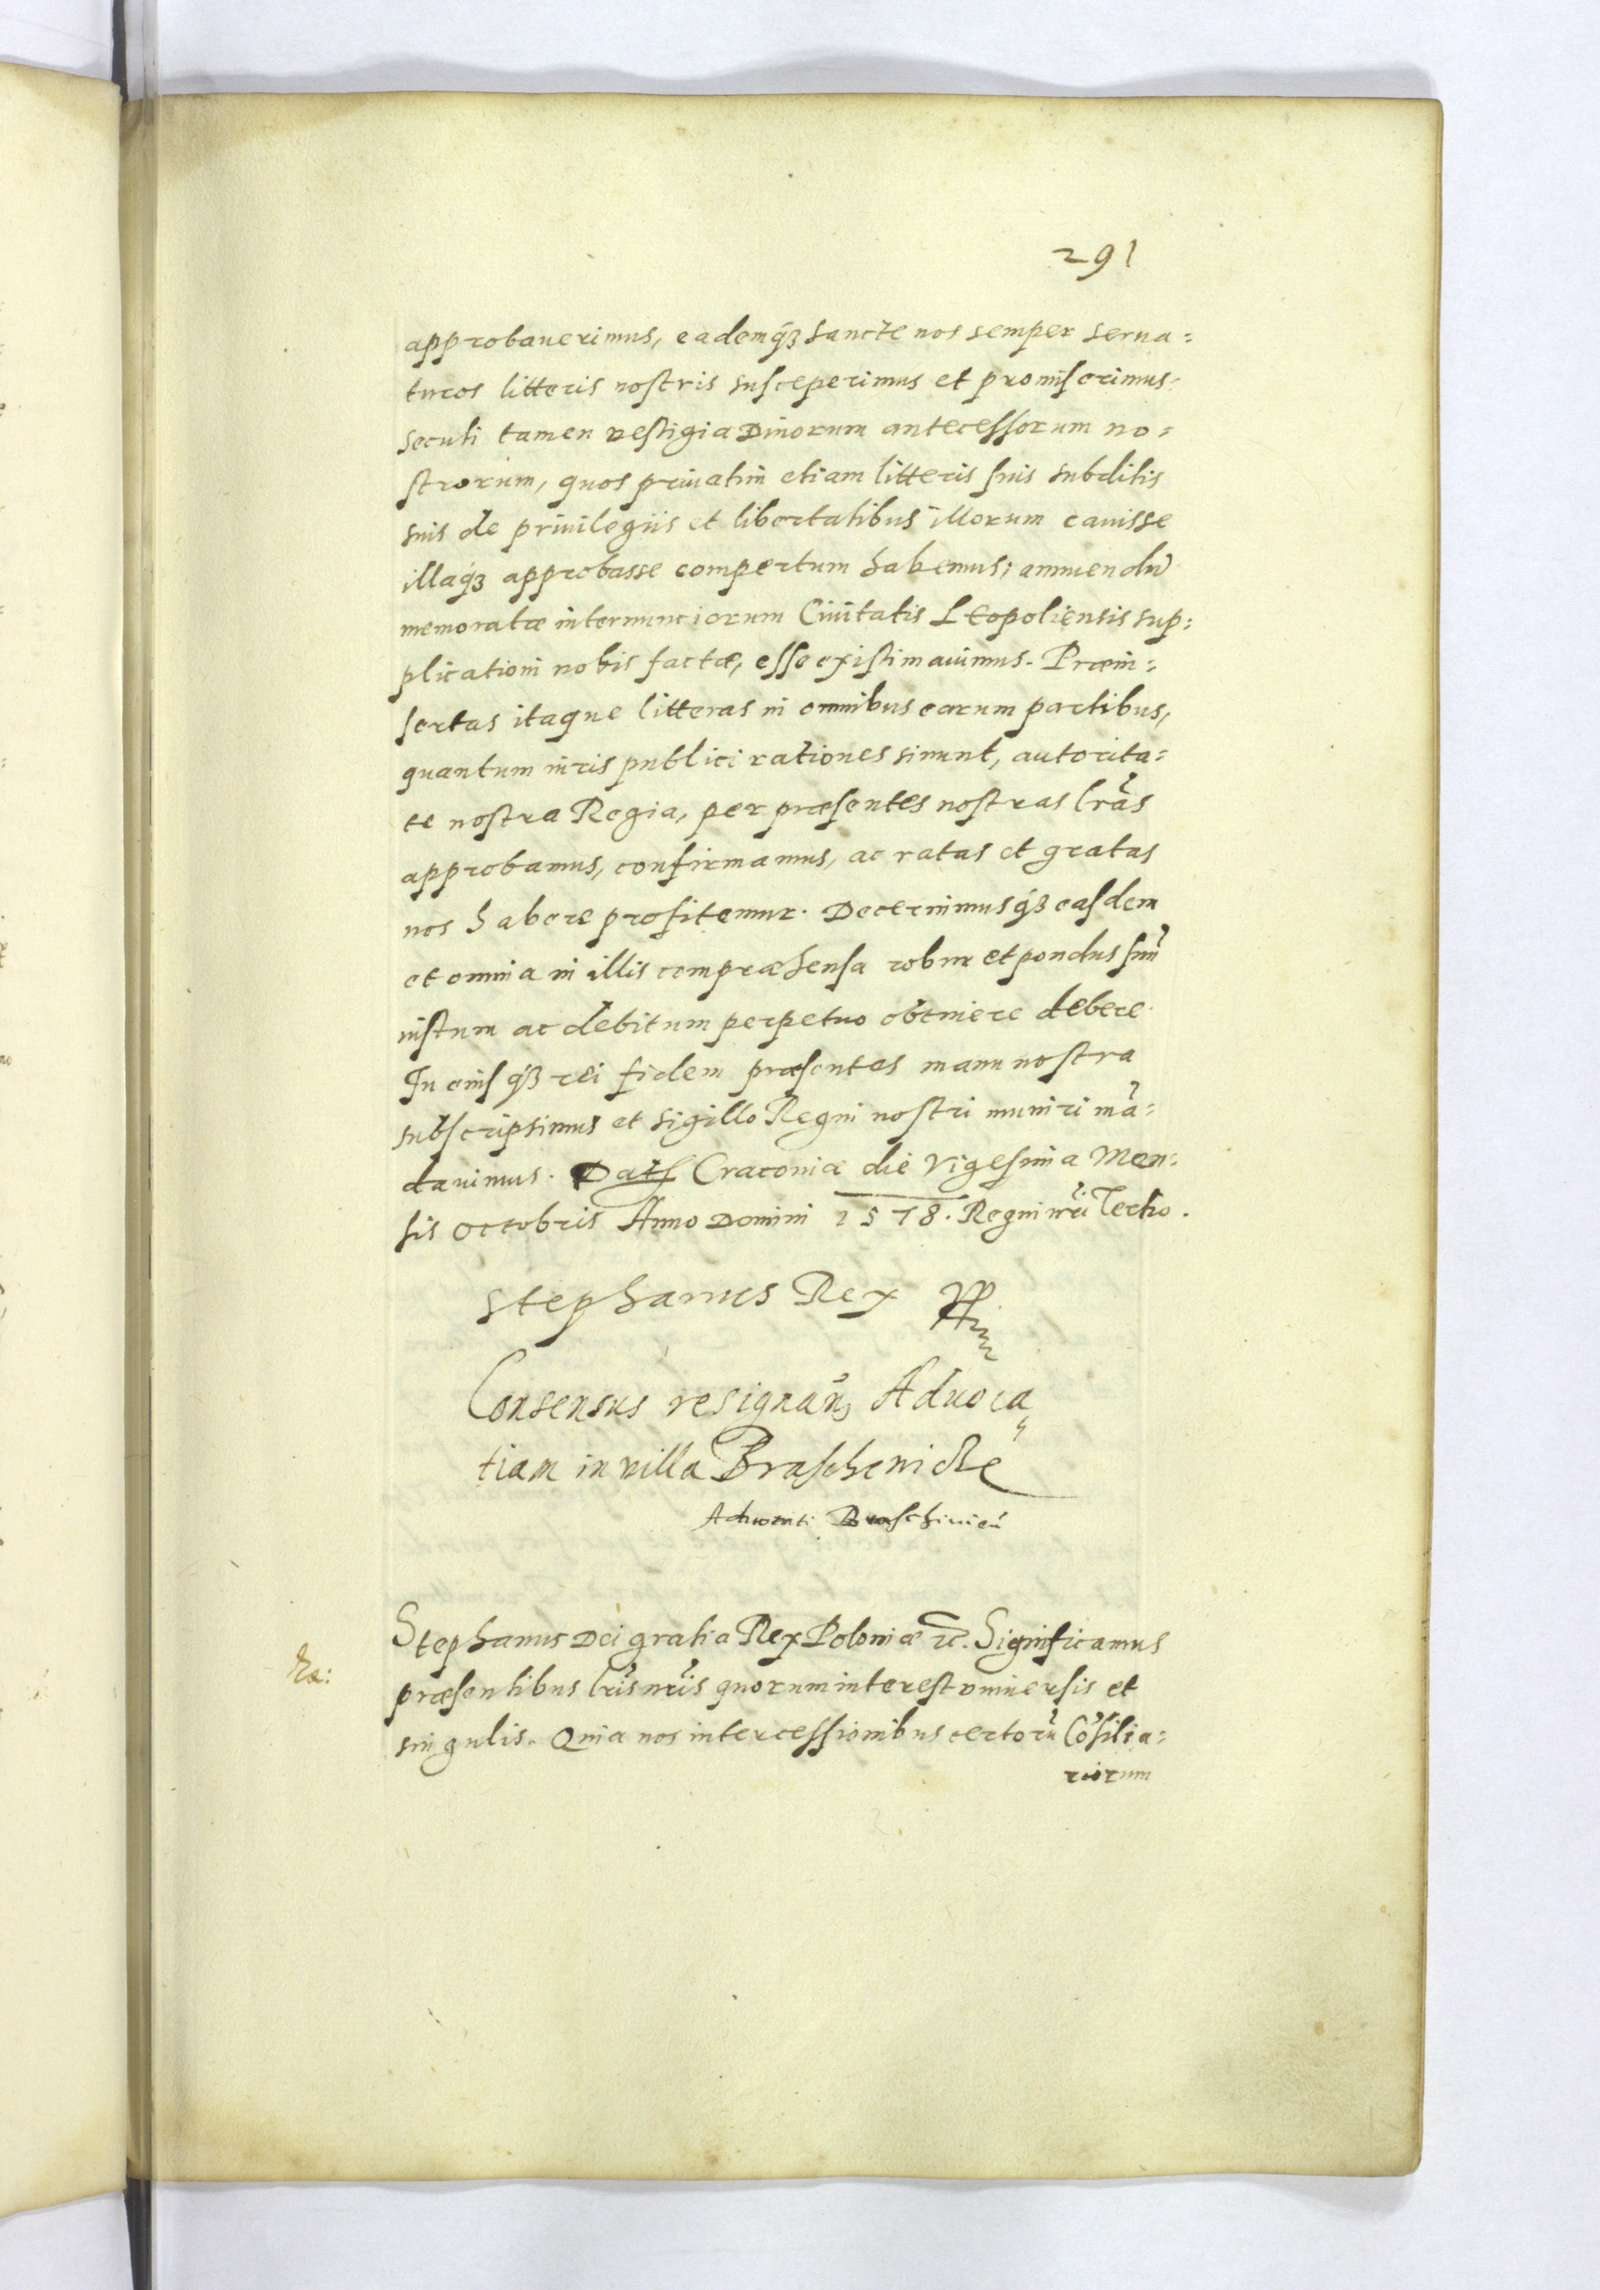 291
approbauerimus, eademq́ꝫ sancte nos semper serua=
turos litteris nostris susceperimus et promiserimus.
secuti tamen vestigia Diuorum antecessorum no=
strorum, quos priuatim etiam litteris suis subditis
suis de priuilegiis et libertatibus illorum cauisse
illaq́ꝫ approbasse compertum habemus; annuendũ
memoratæ internunciorum Ciuitatis Leopoliensis sup=
plicationi nobis factæ, esse existimauimus. Præin=
sertas itaque litteras in omnibus earum partibus,
quantum iuris publici rationes sinunt, autorita=
te nostra Regia, per præsentes nostras lrãs
approbamus, confirmamus, ac ratas et gratas
nos habere profitemur. Decernimusq́ꝫ easdem
et omnia in illis compræhensa robur et pondus suũ
iustum ac debitum perpetuo obtinere debere.
In eiusq́ꝫ rei fidem præsentes manu nostra
subscripsimus et sigillo Regni nostri muniri mã=
dauimus. Dat Cracouiæ die Vigesima Men=
sis Octobris Anno Domini 1578. Regni nr̃i Tertio.
Stephanus Rex
Consensus resignañ, Aduoca
tiam in villa Braschenicke
Aduocati Braschinicũ
Stephanus Dei gratia Rex Poloniæ ꝛc. Significamus
præsentibus lr̃is nr̃is quorum interest vniuersis et
singulis. Quia nos intercessionibus certorũ Cõsilia=
riorum